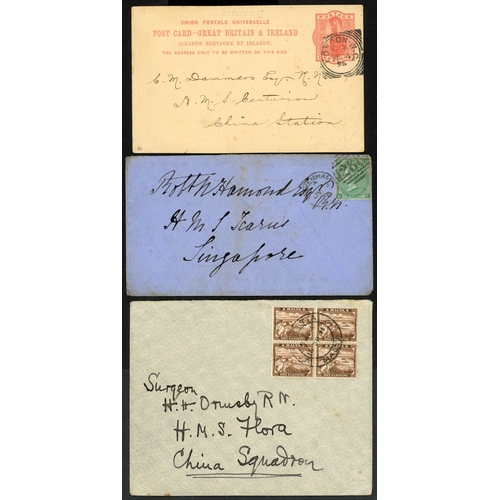 UNION POSTALE UNIVERSELLE
POST CARD-GREAT BRITAIN & IRELAND
(GRANDE BRETAGNE ET IRLANDE)
THE ADDRESS ONLY TO BE WRITTEN ON THIS SIDE.
C. M. Dammers Esqr R.N.
H.M.S. Centurion
China Station
Hamond Esq
R.N.
H M S Icarus
Singapore
MALTA MALTA
MALTA MALTA
Surgeon
H.H. Ormsby R.N.
H.M.S. Flora
China Squadron